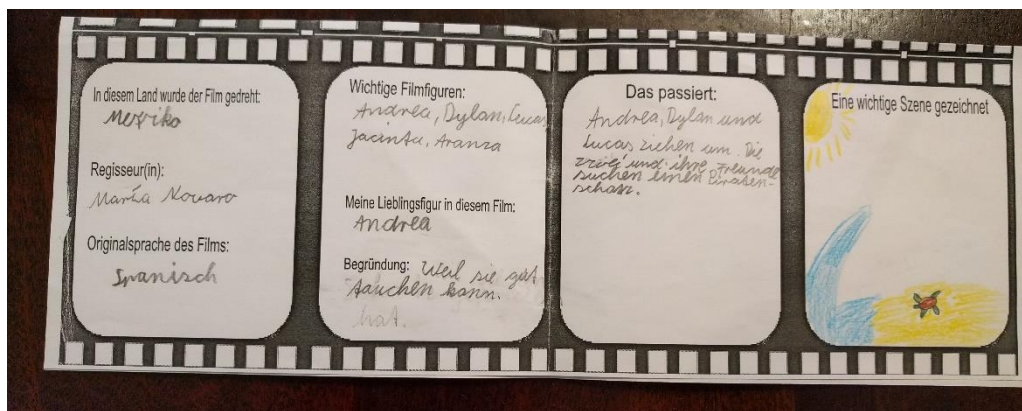 In diesem Land wurde der Film gedreht:
Mexiko
Regisseur(in):
María Novaro
Originalsprache des Films:
Spanisch
Wichtige Filmfiguren:
Andrea, Dylan, Lucas
Jacinta, Aranza
Meine Lieblingsfigur in diesem Film:
Andrea
Begründung: Weil sie gut
tauchen kann.
hat.
Das passiert:
Andrea, Dylan und
Lucas ziehen um. Die
zwei und ihre Freunde
suchen einen Piraten-
schatz.
Eine wichtige Szene gezeichnet